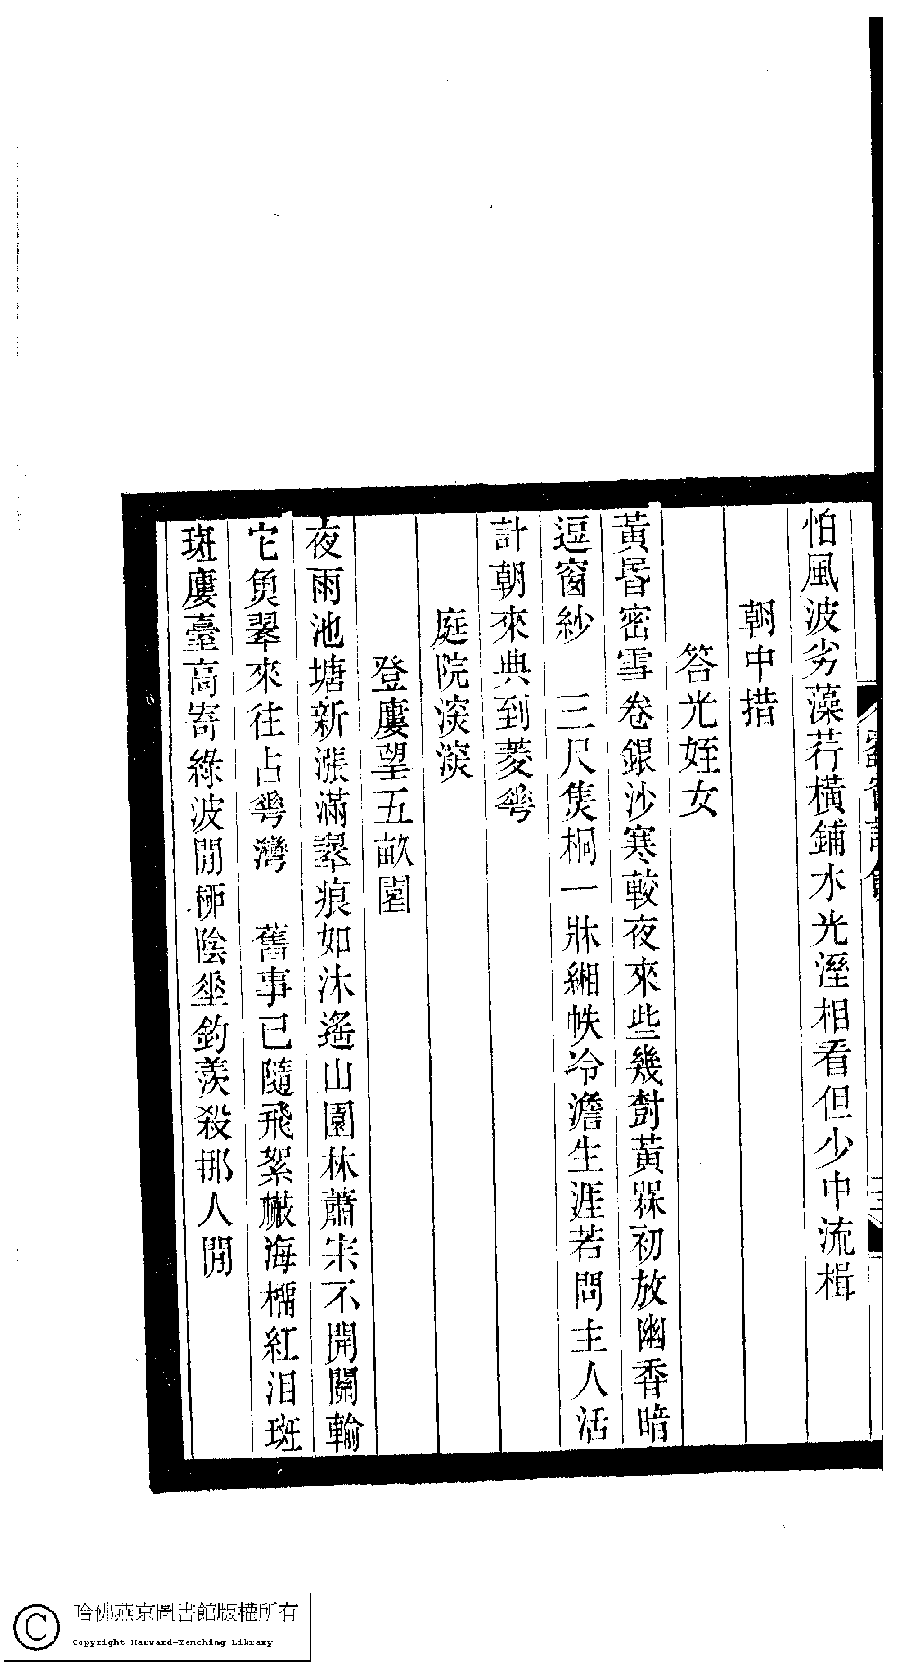 怕風波劣藻荇橫鋪水光溼相看但少中流楫
朝中措
答光姪女
黃昏密雪卷銀沙寒較夜來些幾對黃罞初放幽香暗
逗窗紗　三尺焦桐一牀緗帙冷澹生涯若問主人活
計朝來典到菱華
庭院深深
登廔望五畝園
夜雨池塘新漲滿翠痕如沐遙山園林蕭宋不開關輸
它魚翠來往占華灣　舊事已隨飛絮橶海榴紅泪斑
斑廔臺高寄綠波閒桺陰坐釣羨殺那人閒
哈佛燕京圖書館版權所有
Copyright Harvard-Yenching Library